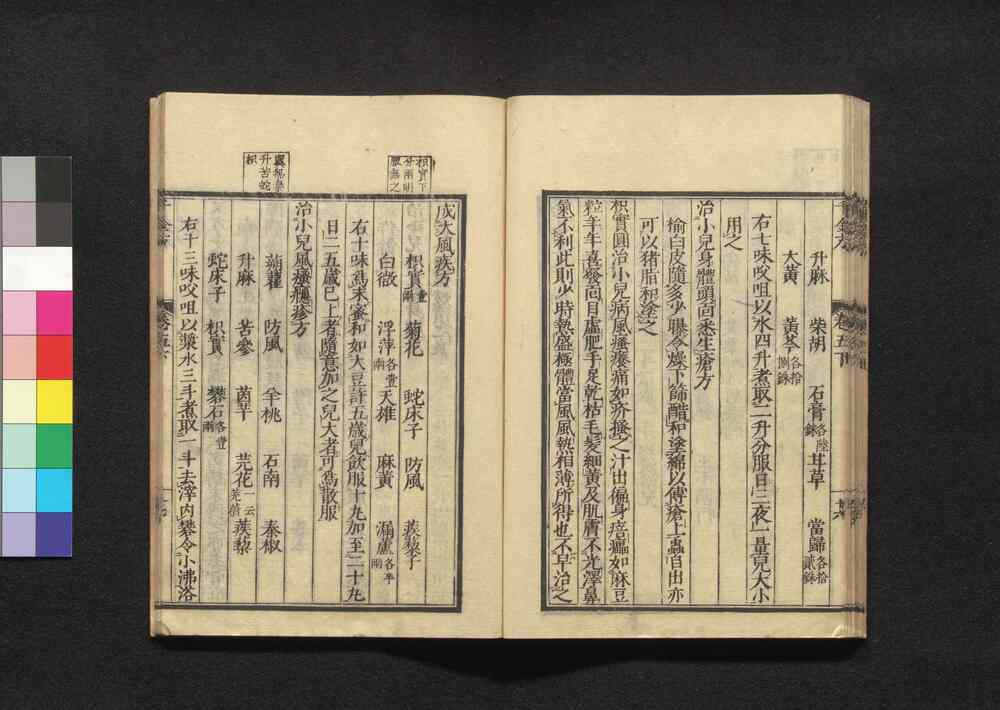 升麻 柴胡 石膏各陸銖 甘草 當歸各拾貳銖
大黃 黃芩各拾捌銖
右七味㕮咀以水四升煮取二升分服日三夜一量兒大小
用之
治小兒身體頭面悉生瘡方
榆白皮隨多少曝令燥下篩醋和塗綿以傅瘡上蟲自出亦
可以猪脂和塗之
枳實圓治小兒病風瘙癢痛如疥搔之汁出徧身㾦㿔如麻豆
粒年年喜發面目虛肥手足乾枯毛髮細黃及肌膚不光澤鼻
氣不利此則少時熱盛極體當風風熱相薄所得也不早治之
成大風疾方
枳實壹兩 菊花 蛇床子 防風 蒺藜子
白薇 浮萍各壹兩 天雄 麻黃 漏蘆各半兩
右十味為末蜜和如大豆許五歲兒飲服十丸加至二十丸
日二五歲已上者隨意加之兒大者可為散服
治小兒風瘙癮疹方
蒴藋 防風 羊桃 石南 秦椒
升麻 苦參 茵芋 芫花一云芫蔚 蒺藜
蛇床子 枳實 礬石各壹兩
右十三味㕮咀以漿水三斗煮取一斗去滓內礬令小沸浴
枳實下
分兩明
升苦蛇
枳